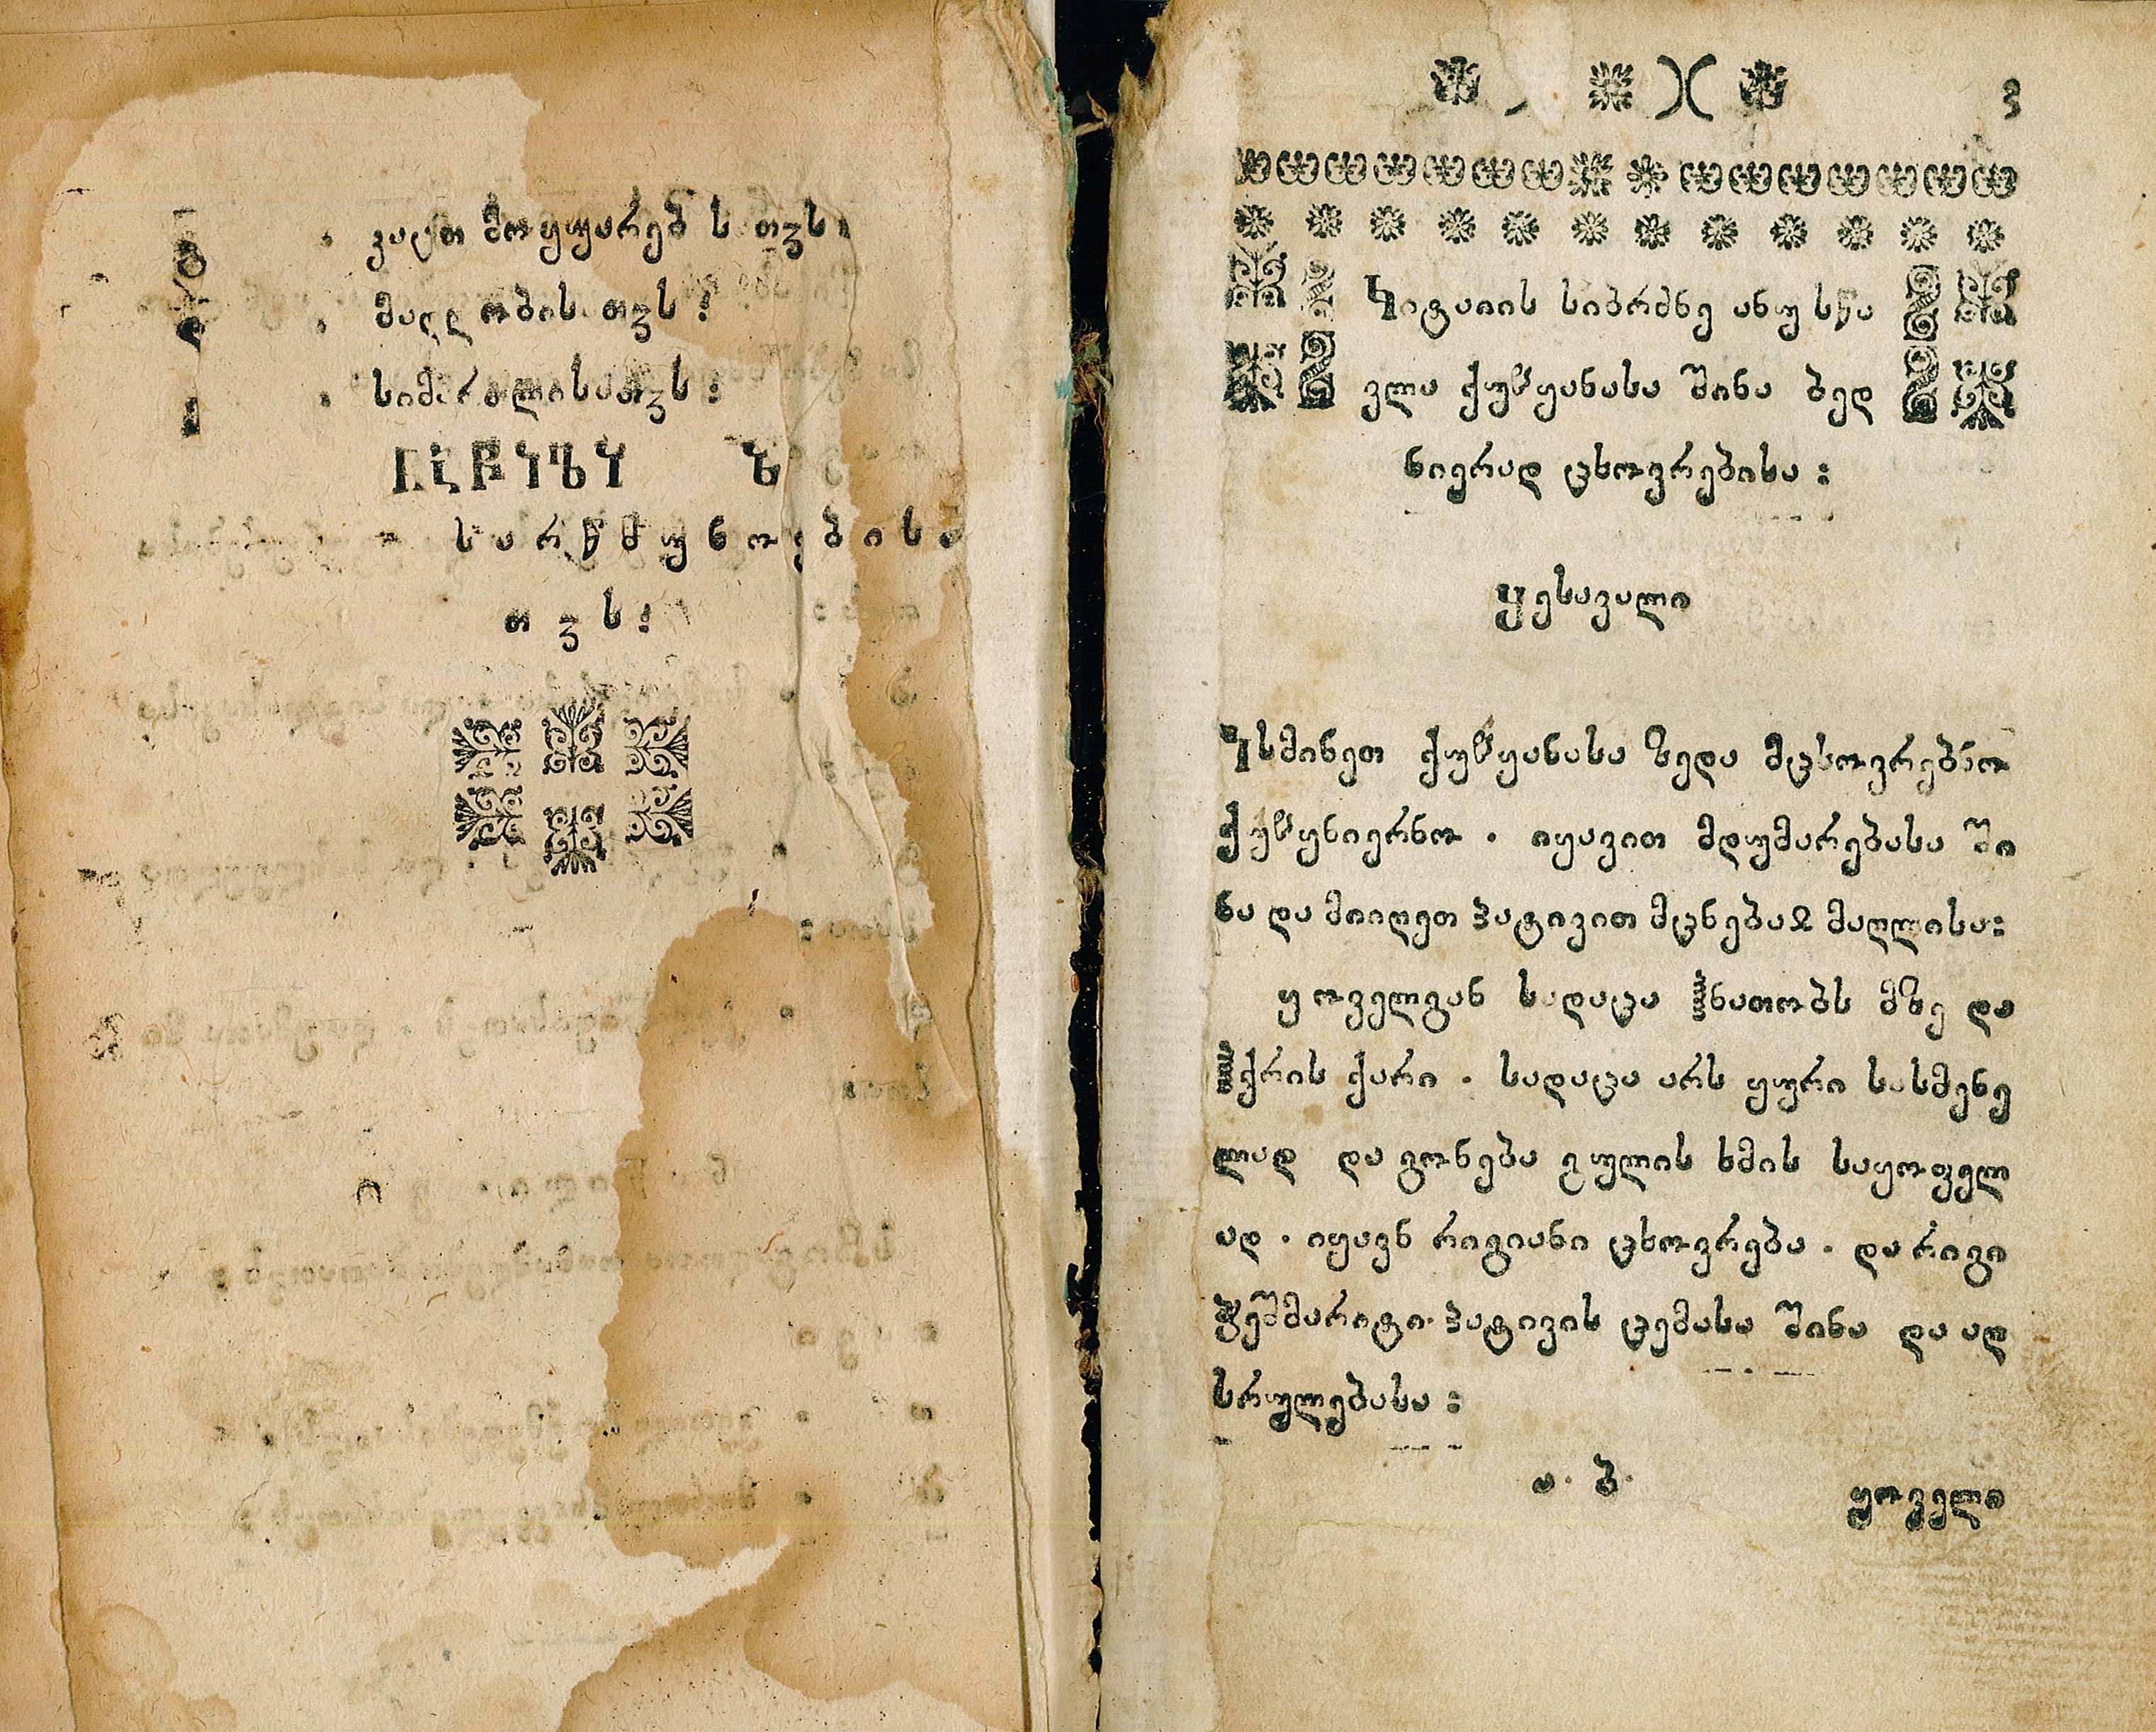 კაცთ მოყუარებ ს თჳს
მადლობის თჳს :
სიმართლისათჳს :
ს ა რ წ მ უ ნ ო ე ბ ი ს ა
თ ჳ ს :
ჩიტაიის სიბრძნე ანუ სწა
ვლა ქუჱყანასა შინა ბედ
ნიერად ცხოვრებისა :
შესავალი
ისმინეთ ქუჱყანასა ზედა მცხოვრებნო
ქუჱყნიერნო . იყავით მდუმარებასა ში
ნა და მიიღეთ პატივით მცნებაჲ მაღლისა :
ყოველგან სადაცა ნათობს მზე და
ქრის ქარი . სადაცა არს ყური სასმენე
ლად და გონება გულის ხმის საყოფელ
ად . იყავნ რიგიანი ცხოვრება . და რიგი
ჭეშმარიტი პატივის ცემასა შინა და აღ
სრულებასა :
ა . ბ .
ყოველი